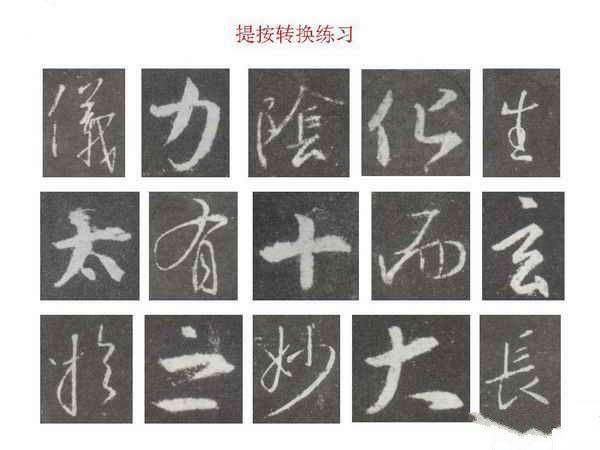 提按转换练习
儀 力 陰 化 生
太 有 十 而 玄
於 二 妙 大 長